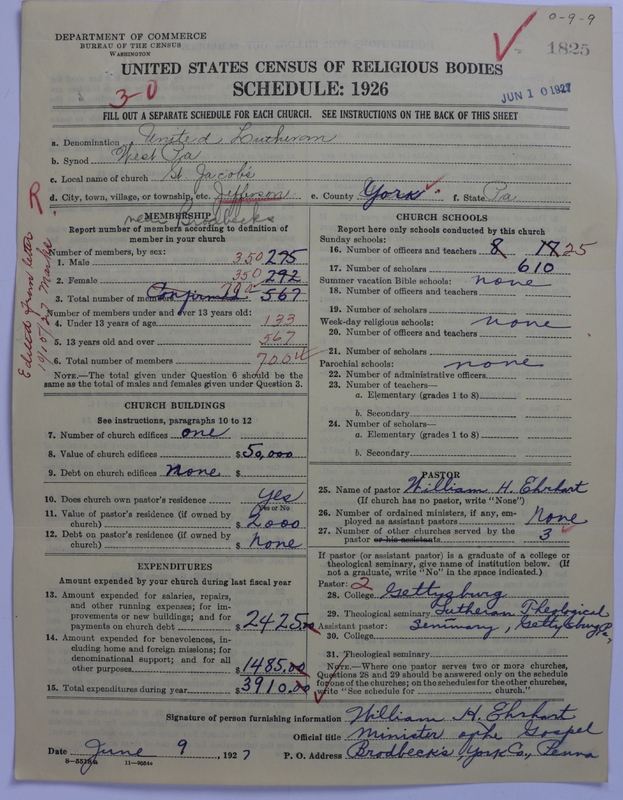 0-9-9
DEPARTMENT OF COMMERCE
BUREAU OF THE CENSUS
WASHINGTON
1825
UNITED STATES CENSUS OF RELIGIOUS BODIES
SCHEDULE: 1926
3-0
JUN 10 1927
FILL OUT A SEPARATE SCHEDULE FOR EACH CHURCH. SEE INSTRUCTIONS ON THE BACK OF THIS SHEET
a. Denomination United Lutheran
b. Synod West Pa
c. Local name of church St. Jacobs
d. City, town, village, or township, etc. Jefferson e. County York f. State Pa
near Brodbecks
R
Edited from letter
10/5/27 Marks
MEMBERSHIP
Report number of members according to definition of
member in your church
Number of members, by sex:
1. Male 350 275
2. Female 350 292
3. Total number of members Confirmed 700 567
Number of members under and over 13 years old:
4. Under 13 years of age 133
5. 13 years old and over 567
6. Total number of members 700
NOTE.—The total given under Question 6 should be
same as the total of males and females given under Question 3.
CHURCH BUILDINGS
See instructions, paragraphs 10 to 12
7. Number of church edifices one
8. Value of church edifices $ 50,000
9. Debt on church edifices None $
10. Does church own pastor's residence Yes
Yes or No
11. Value of pastor's residence (if owned by
church) $ 2000
12. Debt on pastor's residence (if owned by
church) $ None
EXPENDITURES
Amount expended by your church during last fiscal year
13. Amount expended for salaries, repairs,
and other running expenses; for im-
provements or new buildings; and for
payments on church debt $ 2425.00
14. Amount expended for benevolences, in-
cluding home and foreign missions; for
denominational support; and for all
other purposes $ 1485.00
15. Total expenditures during year $ 3910.00
CHURCH SCHOOLS
Report here only schools conducted by this church
Sunday schools:
16. Number of officers and teachers 8 17 25
17. Number of scholars 610
Summer vacation Bible schools: none
18. Number of officers and teachers
19. Number of scholars
Week-day religious schools: none
20. Number of officers and teachers
21. Number of scholars
Parochial schools: none
22. Number of administrative officers
23. Number of teachers—
a. Elementary (grades 1 to 8)
b. Secondary
24. Number of scholars—
a. Elementary (grades 1 to 8)
b. Secondary
PASTOR
25. Name of pastor William H. Ehrhart
(If church has no pastor, write "None")
26. Number of ordained ministers, if any, em-
ployed as assistant pastors None
27. Number of other churches served by the
pastor or his assistants 3
If pastor (or assistant pastor) is a graduate of a college or
theological seminary, give name of institution below. (If
not a graduate, write "No" in the space indicated.)
Pastor: 2
28. College Gettysburg
29. Theological seminary Lutheran Theological
Assistant pastor: Seminary, Gettysburg Pa,
30. College
31. Theological seminary
NOTE.—Where one pastor serves two or more churches,
Questions 28 and 29 should be answered only on the schedule
for one of the churches; on the schedules for the other churches,
write "See schedule for ______ church."
Signature of person furnishing information William H. Ehrhart
Official title Minister of the Gospel
Date June 9, 1927 P. O. Address Brodbecks, York Co., Penna
11-9554